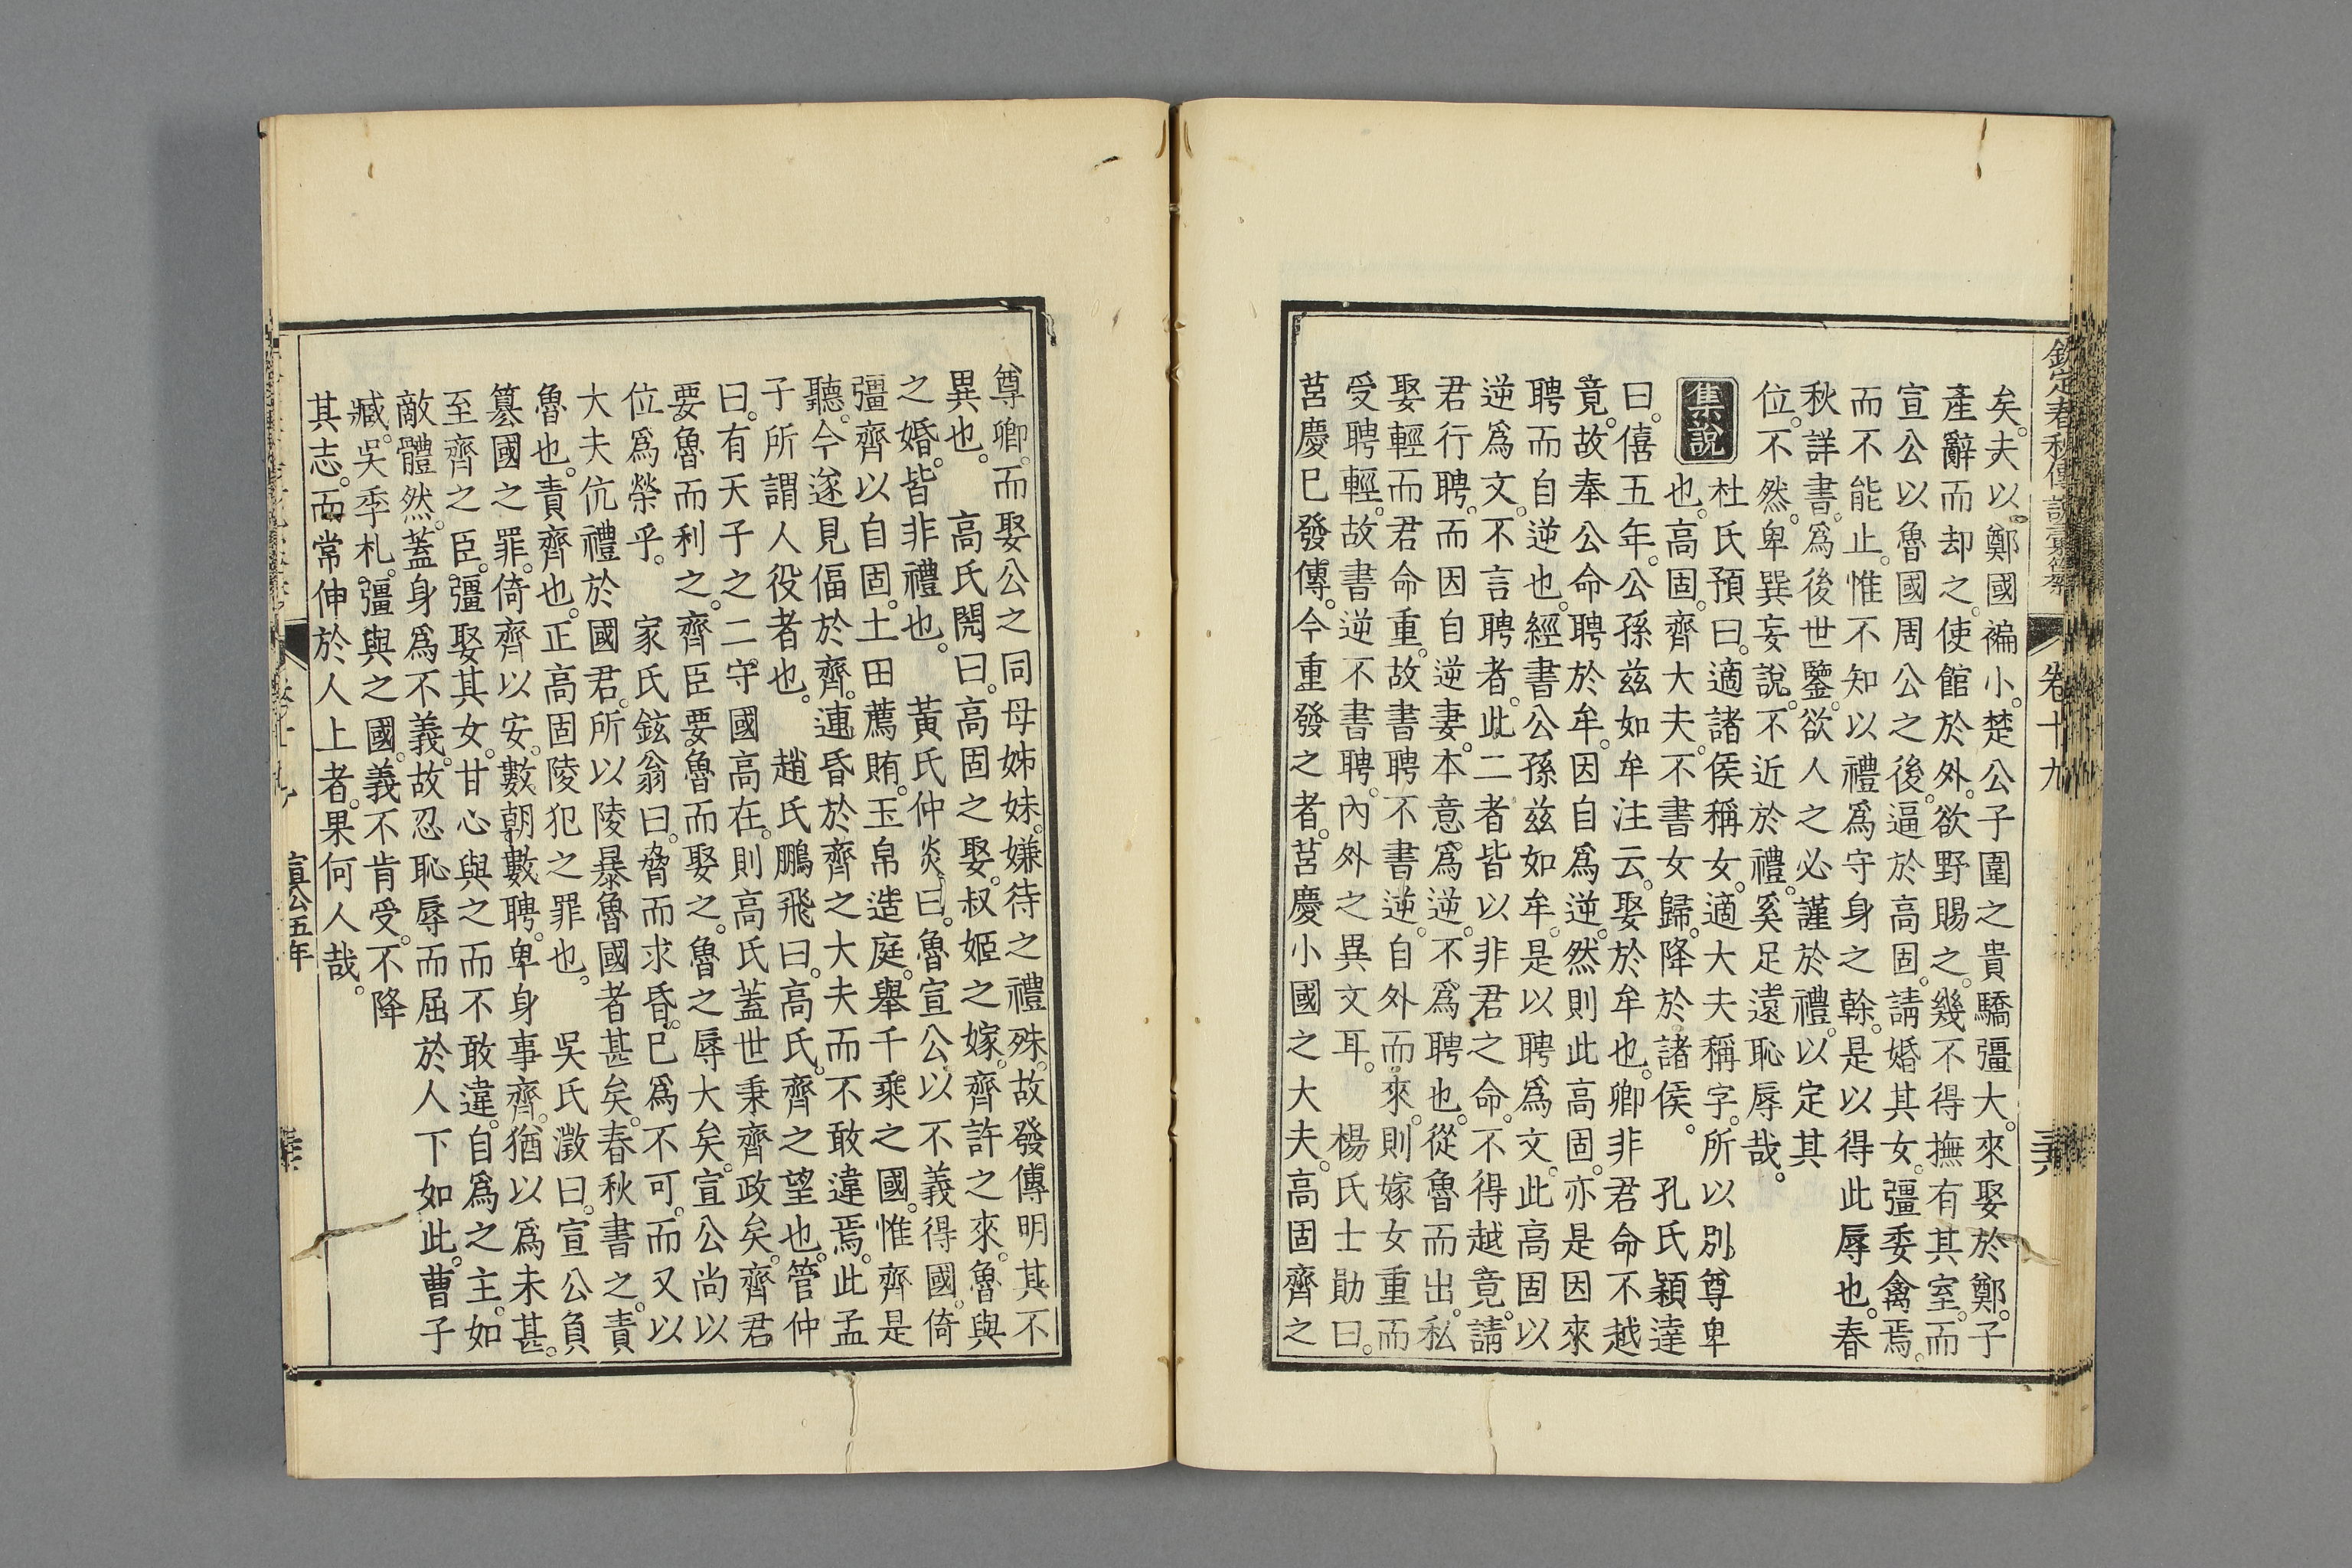 欽定春秋傳說彙纂
卷十九
矣。夫以。鄭國褊小。楚公子圍之貴驕彊大。來娶於鄭。子
產辭而却之。使館於外。欲野賜之。幾不得撫有其室。而
宣公以魯國周公之後。逼於高固。請婚其女。彊委禽焉。
而不能止。惟不知以禮爲守身之幹。是以得此辱也。春
秋詳書。爲後世鑒。欲人之必謹於禮。以定其
位。不然。卑巽妄說。不近於禮。奚足遠恥辱哉。
集說
杜氏預曰。適諸侯稱女。適大夫稱字。所以別尊卑
也。高固。齊大夫。不書女歸。降於諸侯。 孔氏穎達
曰。僖五年。公孫茲如牟注云。娶於牟也。卿非君命不越
竟。故奉公命聘於牟。因自爲逆。然則此高固。亦是因來
聘而自逆也。經書公孫茲如牟。是以聘爲文。此高固以
逆爲文。不言聘者。此二者皆以非君之命。不得越竟。請
君行聘。而因自逆妻。本意爲逆。不爲聘也。從魯而出。私
娶輕而君命重。故書聘不書逆。自外而來。則嫁女重而
受聘輕。故書逆不書聘。內外之異文耳。 楊氏士勛曰。
莒慶已發傳。今重發之者。莒慶小國之大夫。高固齊之
尊卿。而娶公之同母姊妹。嫌待之禮殊。故發傳明其不
異也。 高氏閌曰。高固之娶。叔姬之嫁。齊許之來。魯與
之婚。皆非禮也。 黃氏仲炎曰。魯宣公以不義得國。倚
彊齊以自固。土田薦賄。玉帛造庭。舉千乘之國。惟齊是
聽。今遂見偪於齊。連昏於齊之大夫而不敢違焉。此孟
子所謂人役者也。 趙氏鵬飛曰。高氏。齊之望也。管仲
曰。有天子之二守國高在。則高氏蓋世秉齊政矣。齊君
要魯而利之。齊臣要魯而娶之。魯之辱大矣。宣公尚以
位爲榮乎。 家氏鉉翁曰。脅而求昏。已爲不可。而又以
大夫伉禮於國君。所以陵暴魯國者甚矣。春秋書之。責
魯也。責齊也。正高固陵犯之罪也。 吳氏澂曰。宣公負
篡國之罪。倚齊以安。數朝數聘。卑身事齊。猶以爲未甚。
至齊之臣。彊娶其女。甘心與之而不敢違。自爲之主。如
敵體然。蓋身爲不義。故忍恥辱而屈於人下如此。曹子
臧。吳季札。彊與之國。義不肯受。不降
其志。而常伸於人上者。果何人哉。
宣公五年